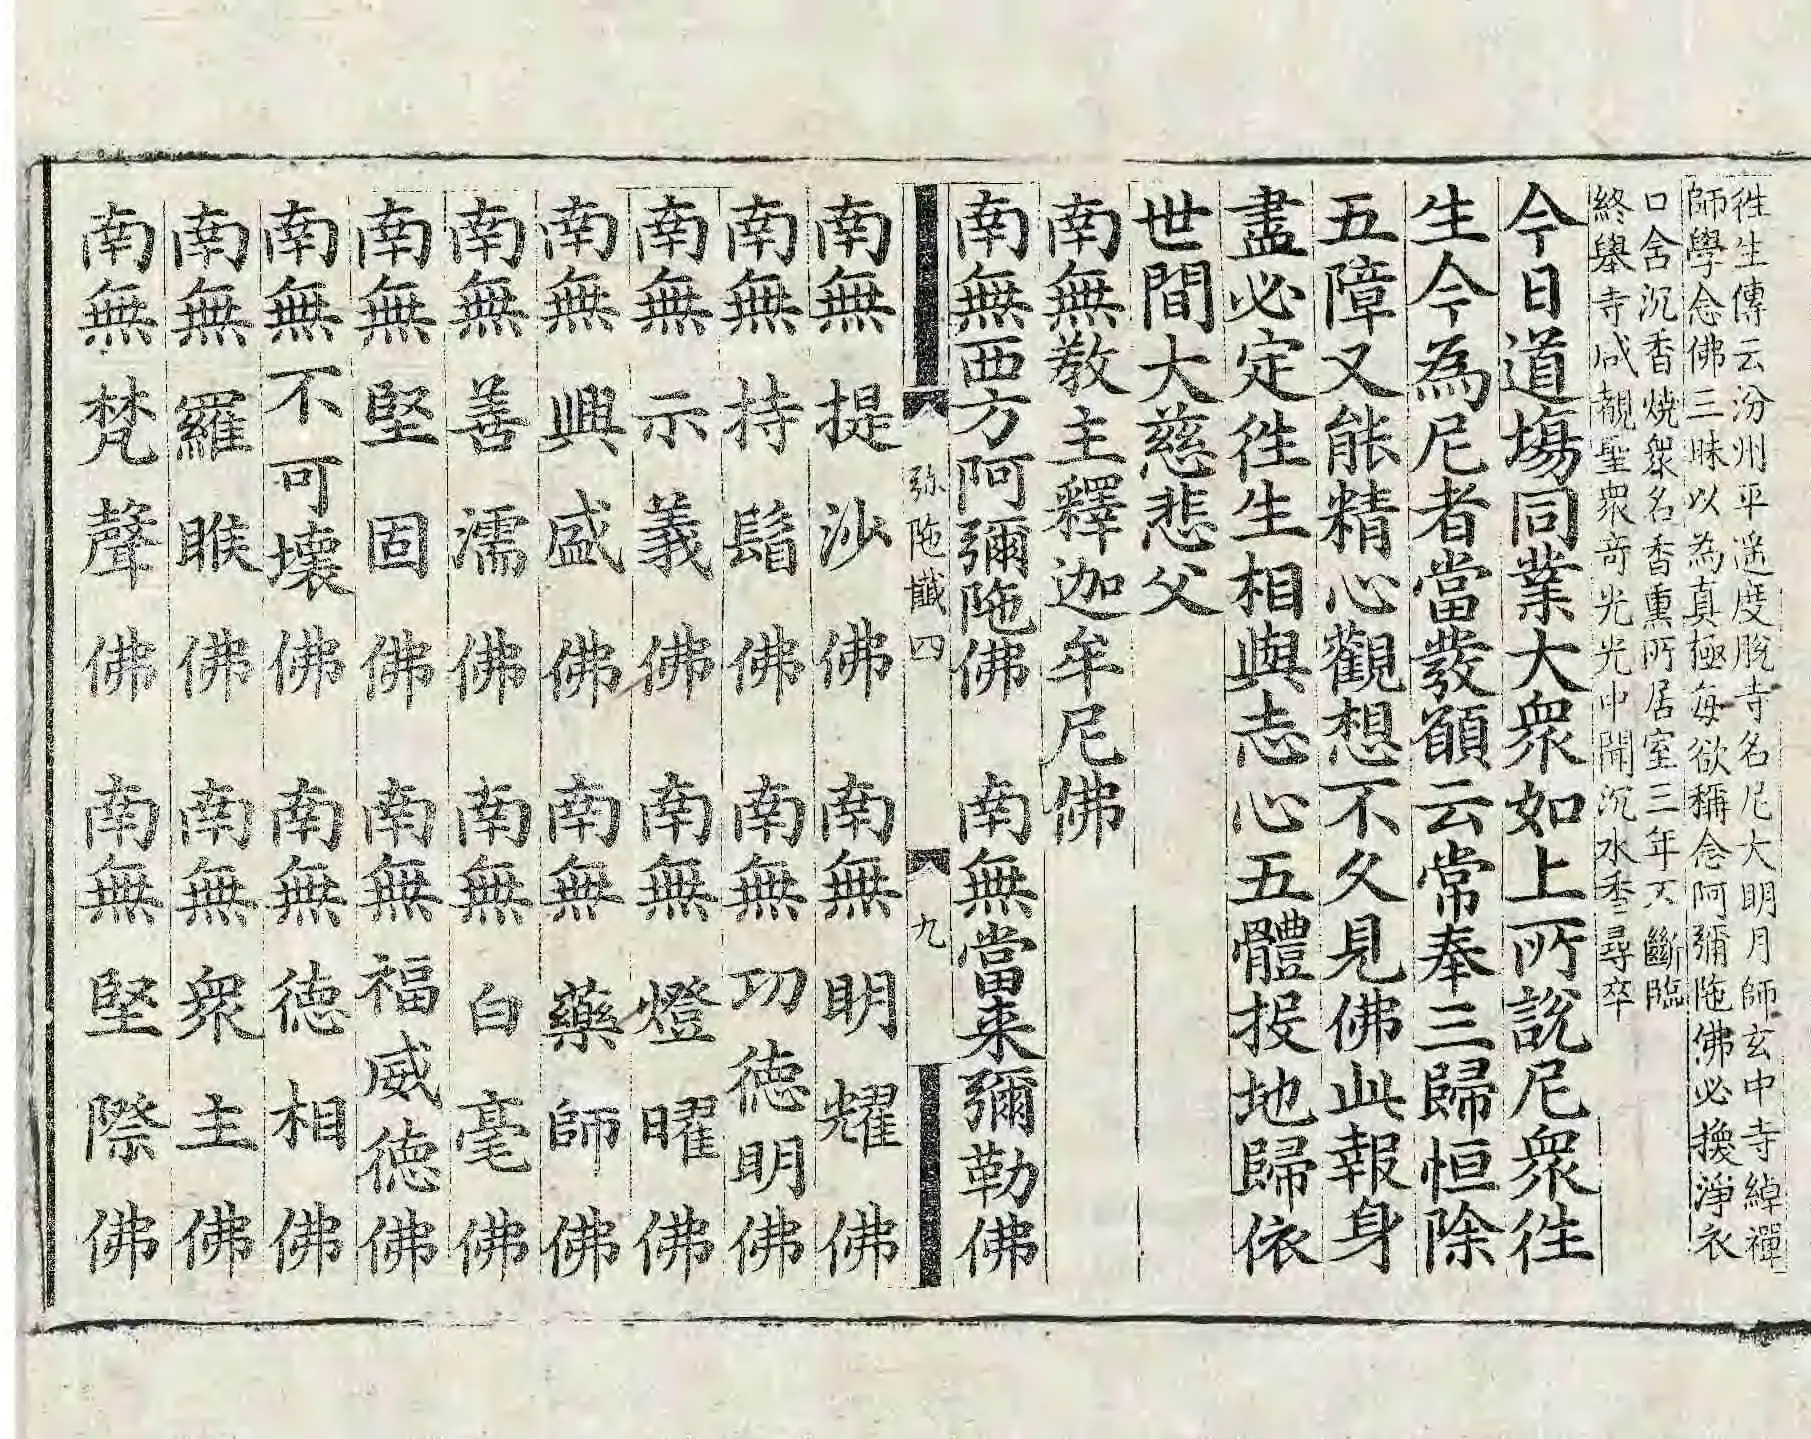 徃生傳云汾州平遥度脫寺名尼大明月師玄中寺綽禪
師學念佛三昧以為真極每欲稱念阿彌陁佛必換淨衣
口含沉香燒衆名香熏所居室三年不斷臨
終舉寺咸覩聖衆竒光光中聞沉水香尋卒
今日道場同業大衆如上所說尼衆徃
生今為尼者當發願云常奉三歸恒除
五障又能精心觀想不久見佛此報身
盡必定徃生相與志心五體投地歸依
世間大慈悲父
南無教主釋迦牟尼佛
南無西方阿彌陁佛　南無當来彌勒佛
弥陁懺四　九
南無提沙佛　南無明耀佛
南無持鬘佛　南無功德明佛
南無示義佛　南無燈曜佛
南無興盛佛　南無藥師佛
南無善濡佛　南無白毫佛
南無堅固佛　南無福威德佛
南無不可壞佛　南無德相佛
南無羅睺佛　南無衆主佛
南無梵聲佛　南無堅際佛